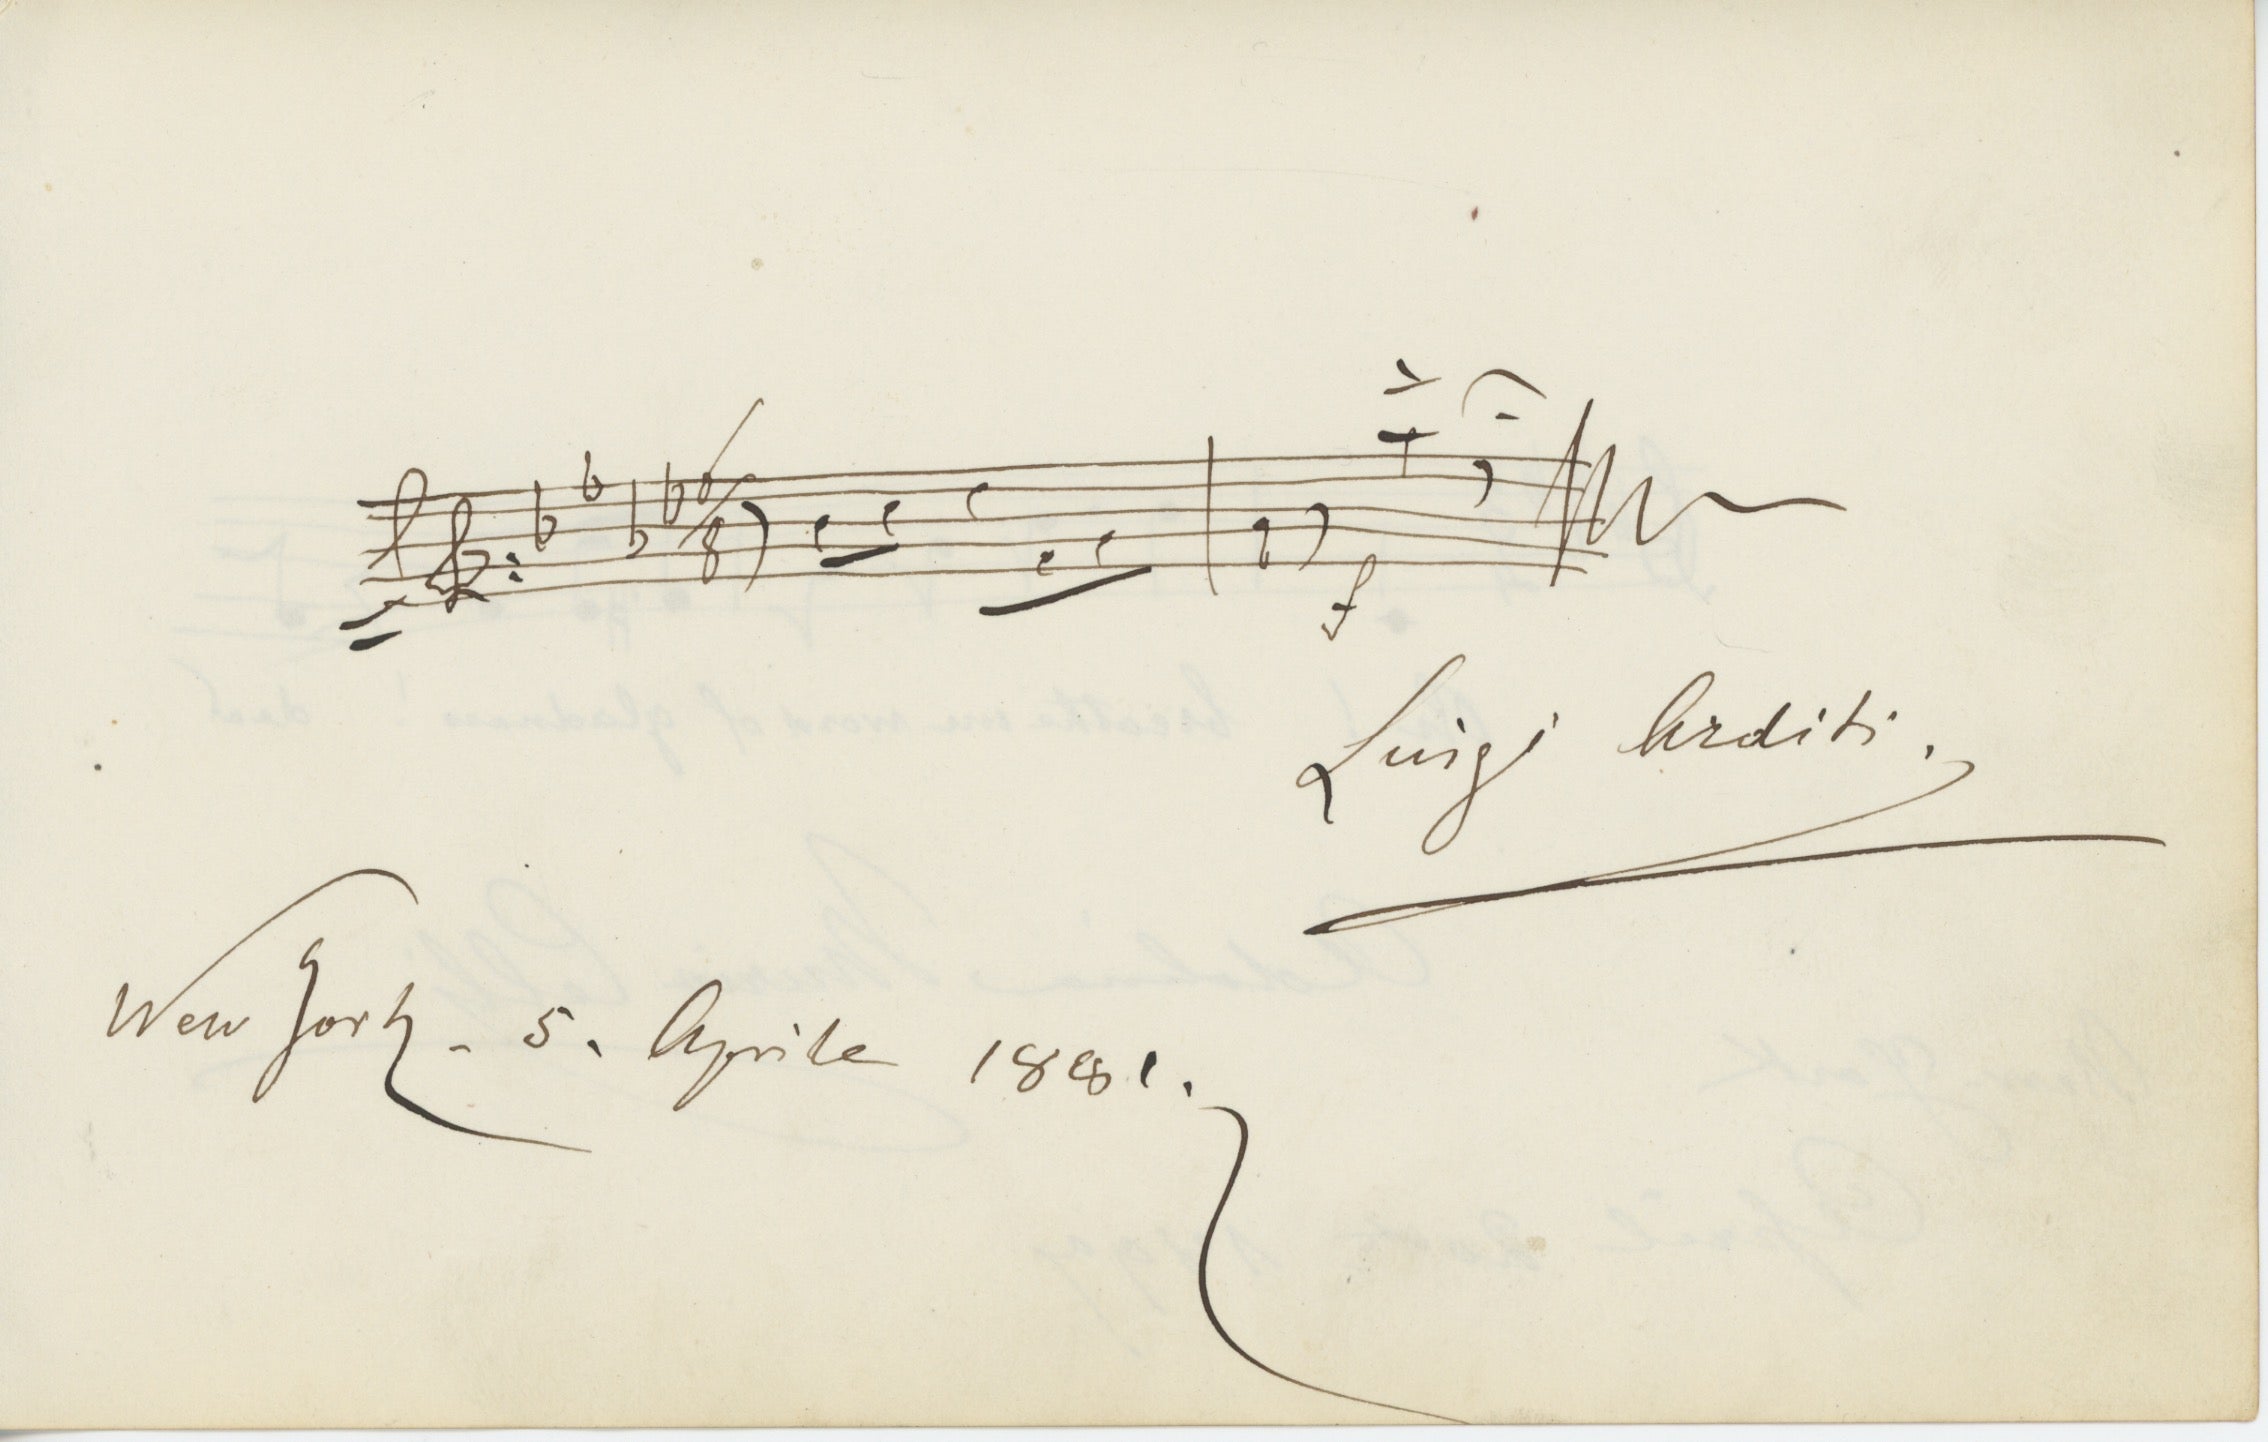 6/8
f
Luigi Arditi.
New York - 5. Aprile 1881.